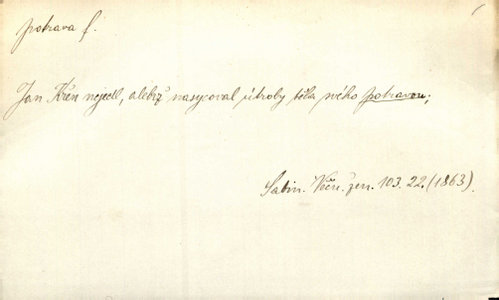 potrava f.
Jan Křen nejedl, alebrž nasycoval útroby těla svého potravou;
Sabin. Věčn. žen. 103. 22. (1863).